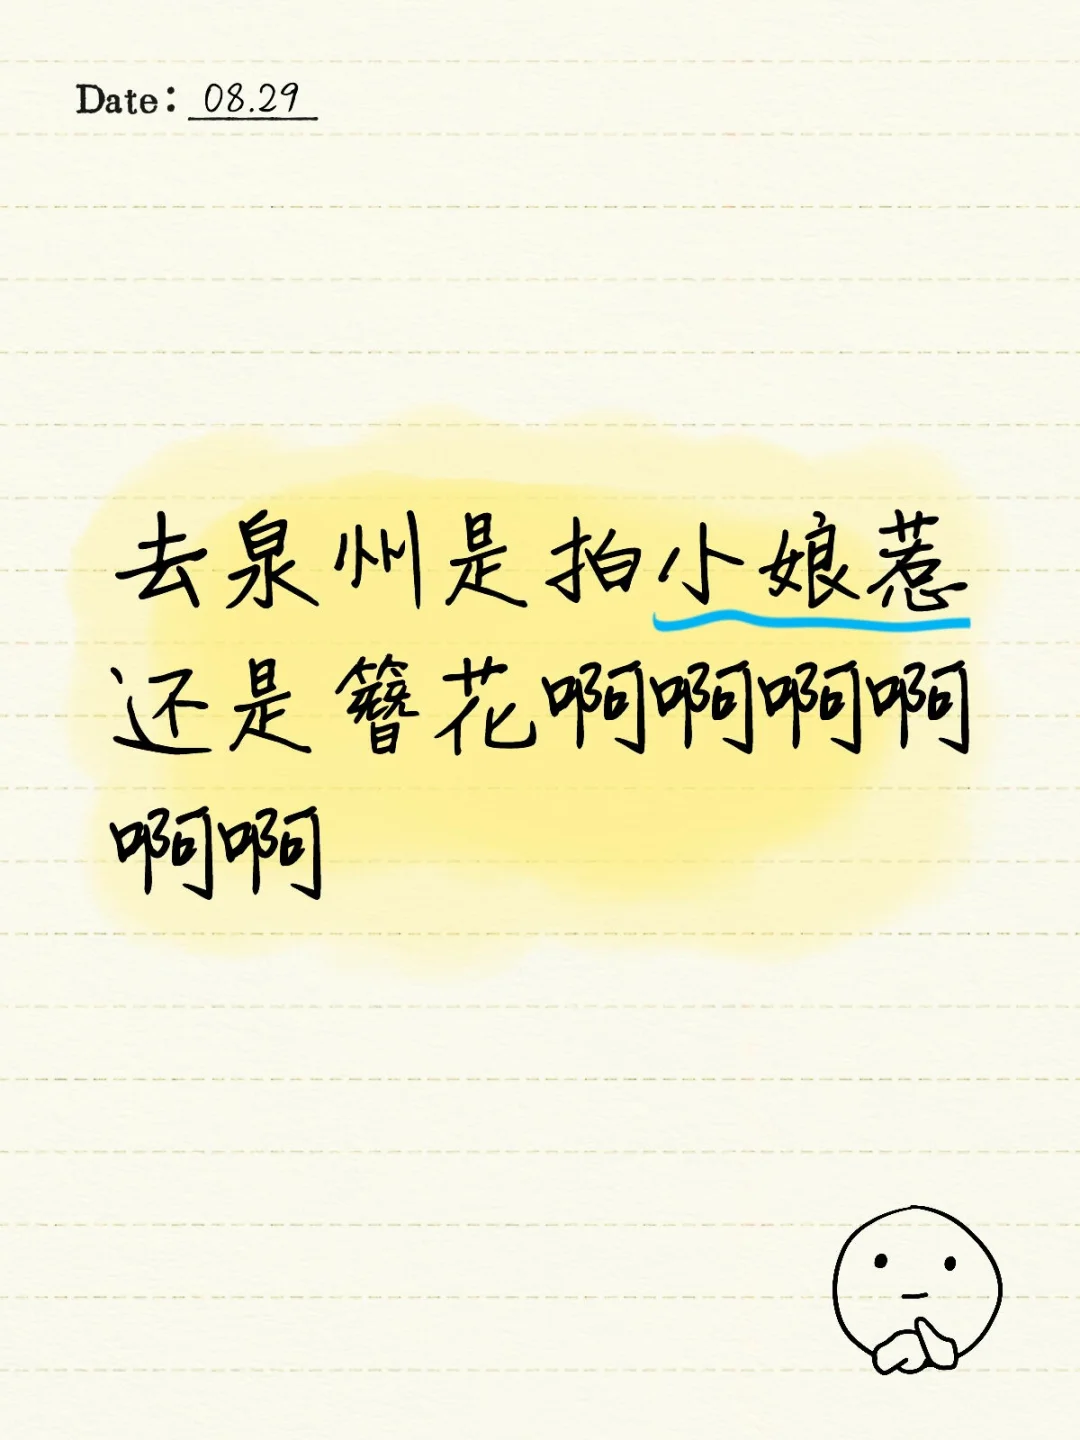 Date: 08.29
去泉州是拍小娘惹
还是簪花啊啊啊啊
啊啊